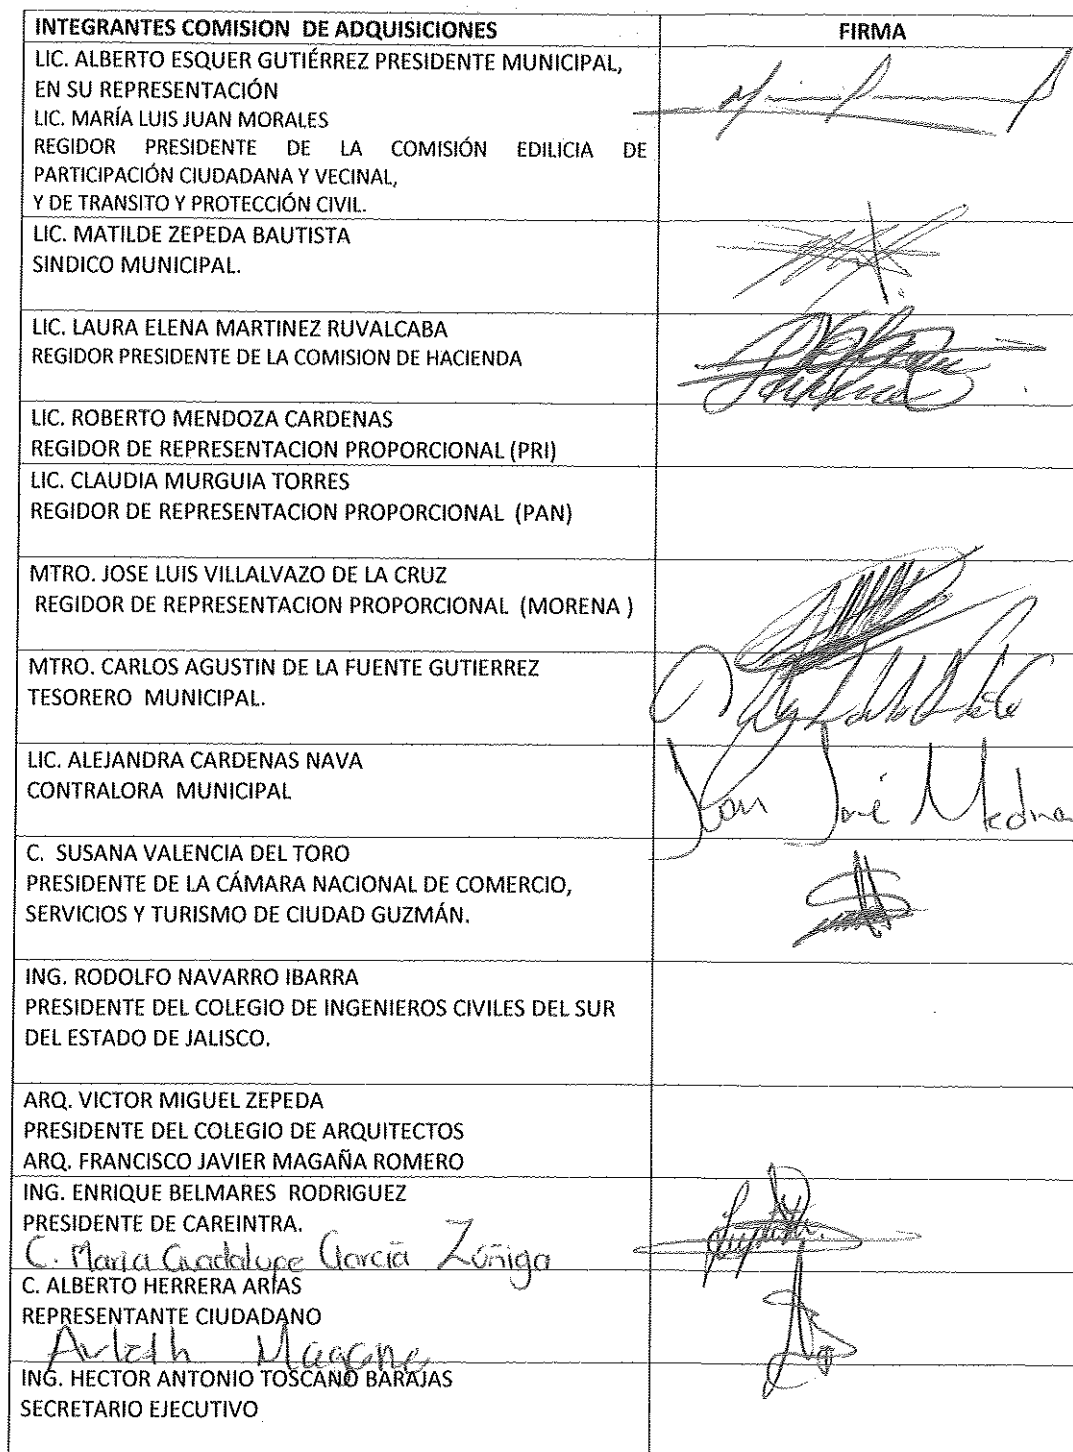 INTEGRANTES COMISION DE ADQUISICIONES
FIRMA
LIC. ALBERTO ESQUER GUTIÉRREZ PRESIDENTE MUNICIPAL,
EN SU REPRESENTACIÓN
LIC. MARÍA LUIS JUAN MORALES
REGIDOR PRESIDENTE DE LA COMISIÓN EDILICIA DE
PARTICIPACIÓN CIUDADANA Y VECINAL,
Y DE TRANSITO Y PROTECCIÓN CIVIL.
LIC. MATILDE ZEPEDA BAUTISTA
SINDICO MUNICIPAL.
LIC. LAURA ELENA MARTINEZ RUVALCABA
REGIDOR PRESIDENTE DE LA COMISION DE HACIENDA
LIC. ROBERTO MENDOZA CARDENAS
REGIDOR DE REPRESENTACION PROPORCIONAL (PRI)
LIC. CLAUDIA MURGUIA TORRES
REGIDOR DE REPRESENTACION PROPORCIONAL (PAN)
MTRO. JOSE LUIS VILLALVAZO DE LA CRUZ
REGIDOR DE REPRESENTACION PROPORCIONAL (MORENA )
MTRO. CARLOS AGUSTIN DE LA FUENTE GUTIERREZ
TESORERO MUNICIPAL.
LIC. ALEJANDRA CARDENAS NAVA
CONTRALORA MUNICIPAL
Juan José Medina
C. SUSANA VALENCIA DEL TORO
PRESIDENTE DE LA CÁMARA NACIONAL DE COMERCIO,
SERVICIOS Y TURISMO DE CIUDAD GUZMÁN.
ING. RODOLFO NAVARRO IBARRA
PRESIDENTE DEL COLEGIO DE INGENIEROS CIVILES DEL SUR
DEL ESTADO DE JALISCO.
ARQ. VICTOR MIGUEL ZEPEDA
PRESIDENTE DEL COLEGIO DE ARQUITECTOS
ARQ. FRANCISCO JAVIER MAGAÑA ROMERO
ING. ENRIQUE BELMARES RODRIGUEZ
PRESIDENTE DE CAREINTRA.
C. Maria Guadalupe García Zúñiga
C. ALBERTO HERRERA ARIAS
REPRESENTANTE CIUDADANO
ING. HECTOR ANTONIO TOSCANO BARAJAS
SECRETARIO EJECUTIVO